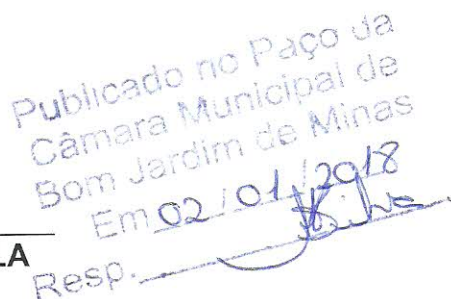 Publicado no Paço da
Câmara Municipal de
Bom Jardim de Minas
Em 02/01/2018
LA
Resp. Silva